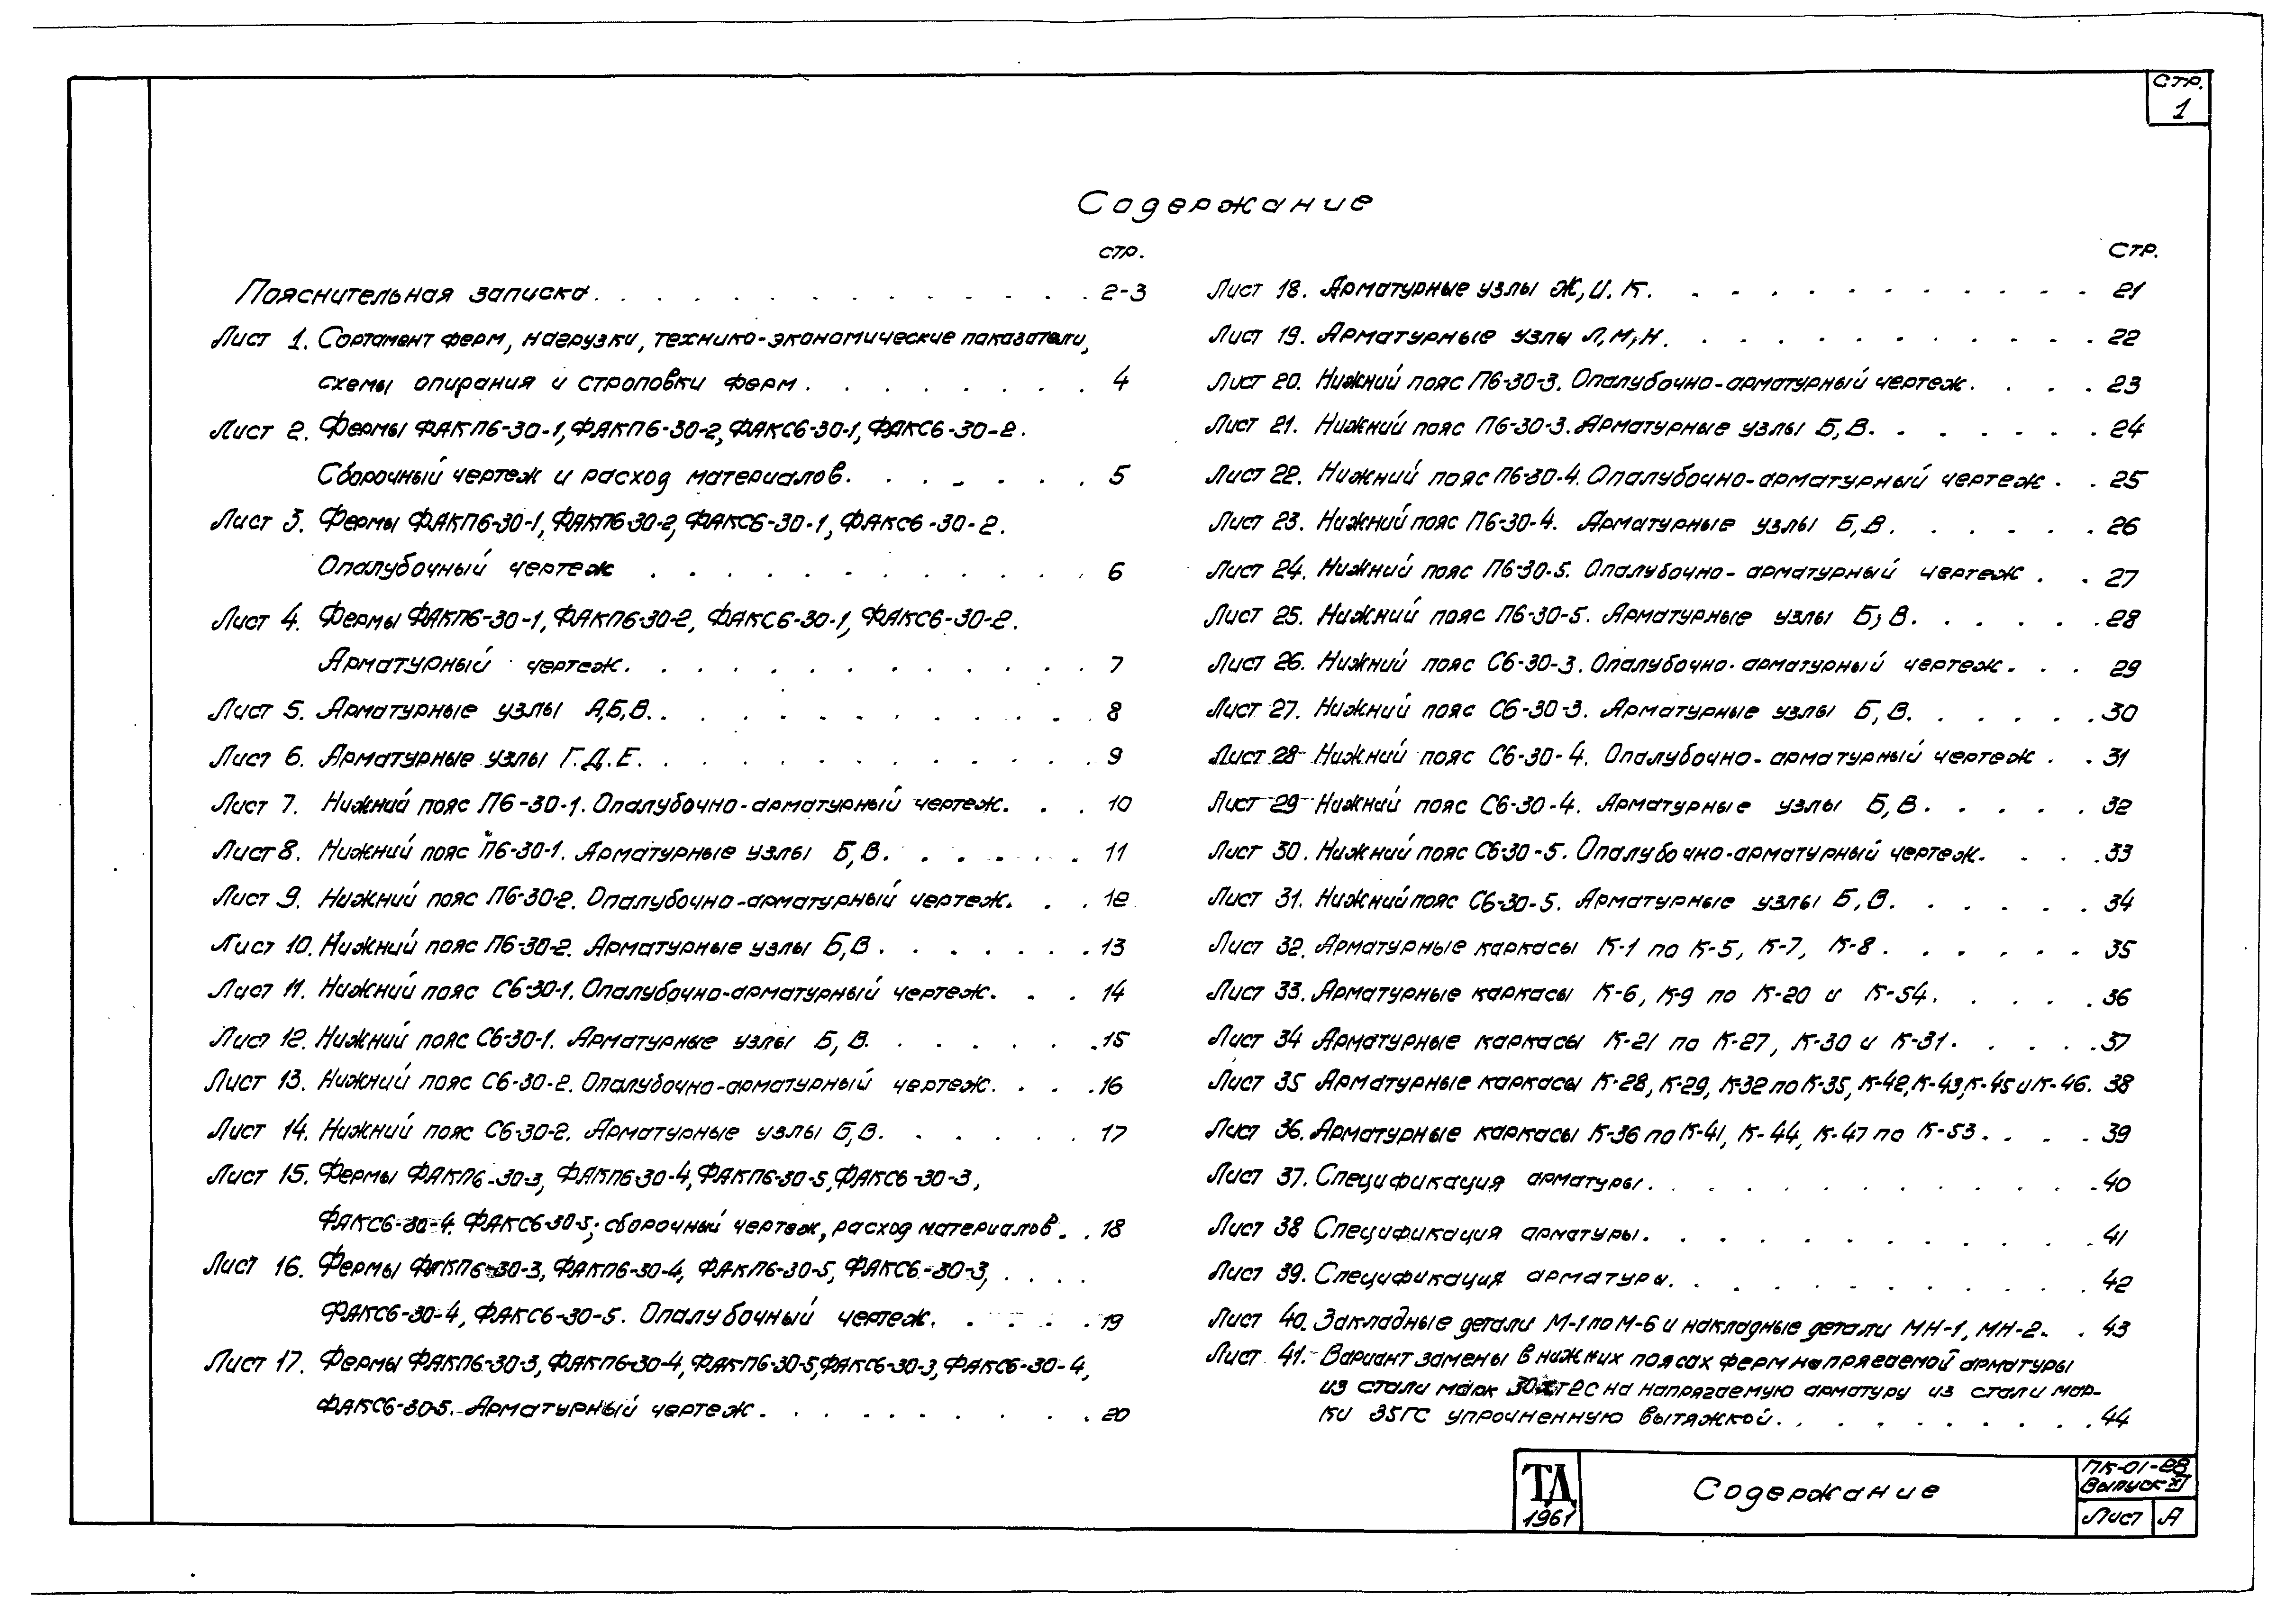 Стр.
1
Содержание
стр.
Пояснительная записка. . . . . . . . . . . . . . 2-3
Лист 1. Сортамент ферм, нагрузки, технико-экономические показатели,
схемы опирания и строповки ферм. . . . . . . . 4
Лист 2. Фермы ФАКП6-30-1, ФАКП6-30-2, ФАКС6-30-1, ФАКС6-30-2.
Сборочный чертеж и расход материалов. . . . . . . 5
Лист 3. Фермы ФАКП6-30-1, ФАКП6-30-2, ФАКС6-30-1, ФАКС6-30-2.
Опалубочный чертеж . . . . . . . . . . . . 6
Лист 4. Фермы ФАКП6-30-1, ФАКП6-30-2, ФАКС6-30-1, ФАКС6-30-2.
Арматурный чертеж. . . . . . . . . . . . . 7
Лист 5. Арматурные узлы А,Б,В. . . . . . . . . . . . . 8
Лист 6. Арматурные узлы Г.Д.Е. . . . . . . . . . . . . 9
Лист 7. Нижний пояс П6-30-1. Опалубочно-арматурный чертеж. . . 10
Лист 8. Нижний пояс П6-30-1. Арматурные узлы Б,В. . . . . . 11
Лист 9. Нижний пояс П6-30-2. Опалубочно-арматурный чертеж. . . 12
Лист 10. Нижний пояс П6-30-2. Арматурные узлы Б,В . . . . . . . 13
Лист 11. Нижний пояс С6-30-1. Опалубочно-арматурный чертеж. . . 14
Лист 12. Нижний пояс С6-30-1. Арматурные узлы Б, В. . . . . . . 15
Лист 13. Нижний пояс С6-30-2. Опалубочно-арматурный чертеж. . . . 16
Лист 14. Нижний пояс С6-30-2. Арматурные узлы Б,В. . . . . . 17
Лист 15. Фермы ФАКП6-30-3, ФАКП6-30-4, ФАКП6-30-5, ФАКС6-30-3,
ФАКС6-30-4. ФАКС6-30-5; сборочный чертеж, расход материалов. . 18
Лист 16. Фермы ФАКП6-30-3, ФАКП6-30-4, ФАКП6-30-5, ФАКС6-30-3, . . . .
ФАКС6-30-4, ФАКС6-30-5. Опалубочный чертеж. . . . . 19
Лист 17. Фермы ФАКП6-30-3, ФАКП6-30-4, ФАКП6-30-5, ФАКС6-30-3, ФАКС6-30-4,
ФАКС6-30-5. Арматурный чертеж. . . . . . . . . . 20
Стр.
Лист 18. Арматурные узлы Ж, И. К. . . . . . . . . . . . 21
Лист 19. Арматурные узлы Л,М,Н. . . . . . . . . . . . 22
Лист 20. Нижний пояс П6-30-3. Опалубочно-арматурный чертеж. . . . 23
Лист 21. Нижний пояс П6-30-3. Арматурные узлы Б,В. . . . . . . 24
Лист 22. Нижний пояс П6-30-4. Опалубочно-арматурный чертеж . . 25
Лист 23. Нижний пояс П6-30-4. Арматурные узлы Б,В. . . . . . 26
Лист 24. Нижний пояс П6-30-5. Опалубочно-арматурный чертеж . . 27
Лист 25. Нижний пояс П6-30-5. Арматурные узлы Б, В. . . . . . 28
Лист 26. Нижний пояс С6-30-3. Опалубочно-арматурный чертеж. . . 29
Лист 27. Нижний пояс С6-30-3. Арматурные узлы Б, В. . . . . . 30
Лист 28 Нижний пояс С6-30-4. Опалубочно-арматурный чертеж . . 31
Лист 29 Нижний пояс С6-30-4. Арматурные узлы Б, В. . . . . . 32
Лист 30. Нижний пояс С6-30-5. Опалубочно-арматурный чертеж. . . . 33
Лист 31. Нижний пояс С6-30-5. Арматурные узлы Б, В. . . . . . 34
Лист 32. Арматурные каркасы К-1 по К-5, К-7, К-8. . . . . . 35
Лист 33. Арматурные каркасы К-6, К-9 по К-20 и К-54. . . . . 36
Лист 34 Арматурные каркасы К-21 по К-27, К-30 и К-31. . . . . 37
Лист 35 Арматурные каркасы К-28, К-29, К-32 по К-35, К-42, К-43, К-45 и К-46. 38
Лист 36. Арматурные каркасы К-36 по К-41, К-44, К-47 по К-53. . . . 39
Лист 37. Спецификация арматуры. . . . . . . . . . . . 40
Лист 38 Спецификация арматуры. . . . . . . . . . . . 41
Лист 39. Спецификация арматуры. . . . . . . . . . . 42
Лист 40. Закладные детали М-1 по М-6 и накладные детали МН-1, МН-2. . 43
Лист 41.- Вариант замены в нижних поясах ферм напрягаемой арматуры
из стали марк 30ХГ2С на напрягаемую арматуру из стали мар-
ки 35ГС упрочненную вытяжкой. . . . . . . . . 44
ТД
1961
Содержание
ПК-01-28
Выпуск XI
Лист А